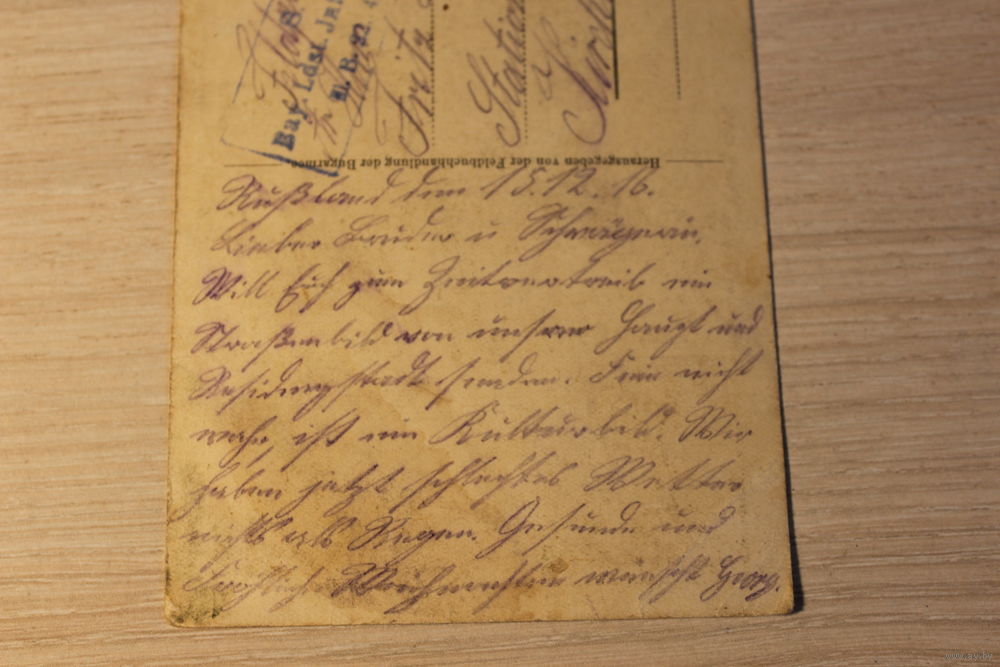 Bay. Ldst.
Fritz
Station
Herausgegeben von der Feldbuchhandlung der Bugarmee
Rußland den 15.12.16.
Lieber Bruder u Schwägerin.
Will Euch zum Zeitvertreib ein
Straßenbild von unserer Haupt und
Residenzstadt senden. Fein nicht
wahr, ist ein Kulturbild. Wir
haben jetzt schlechtes Wetter
nichts als Regen. Gesunde und
Fröhliche Weihnachten wünscht Georg.
www.ay.by